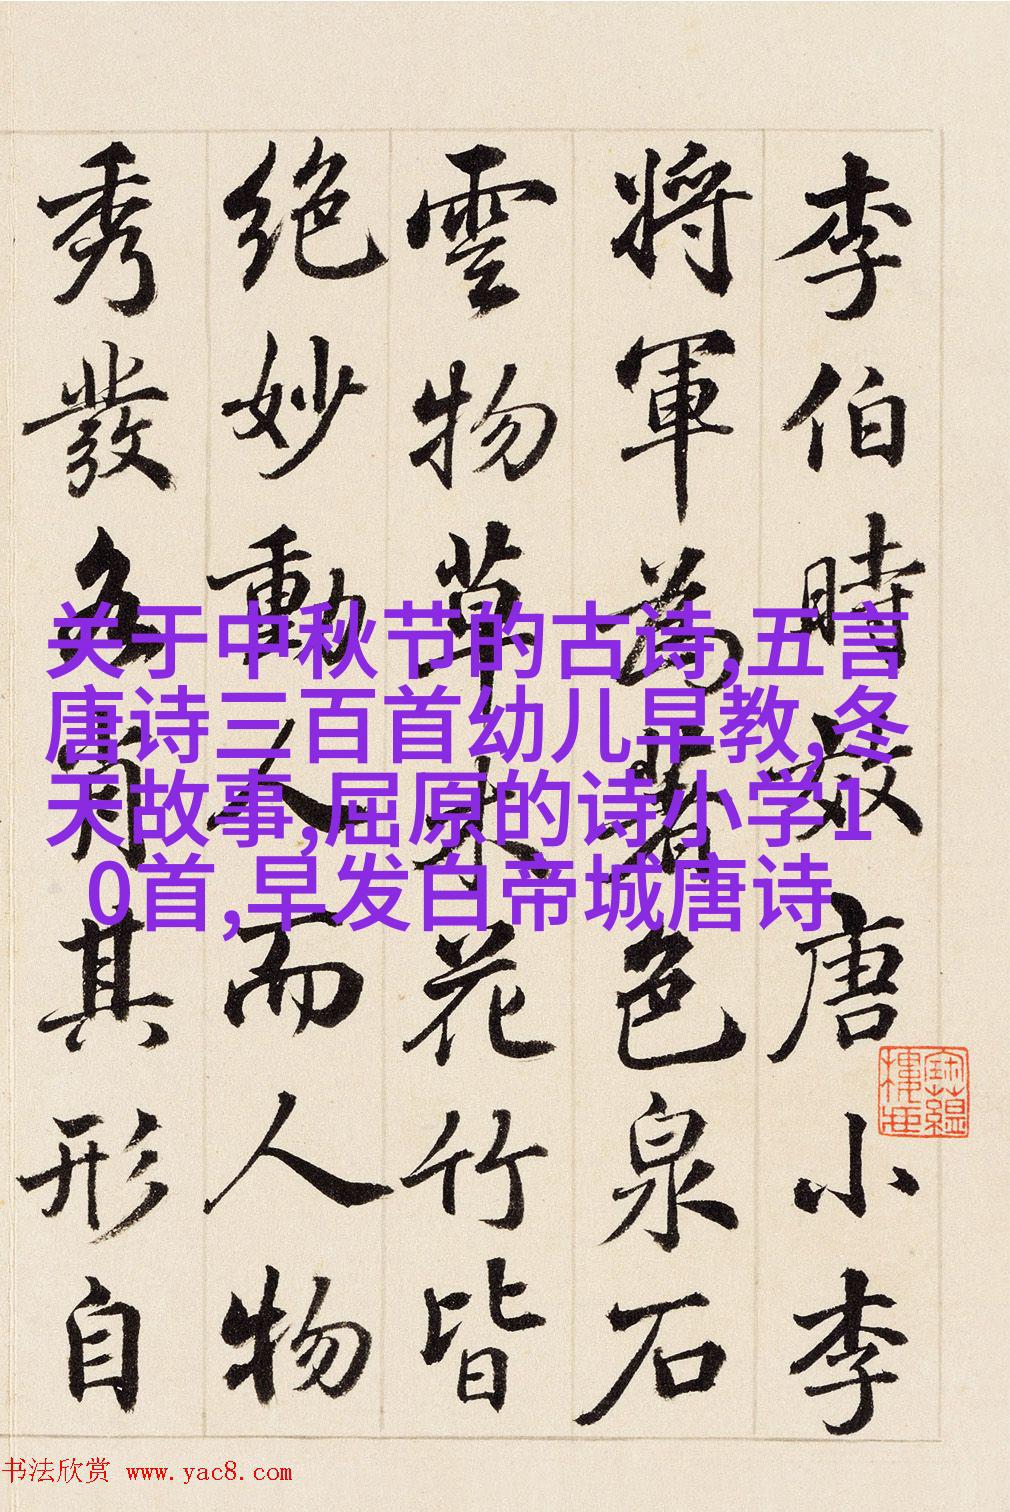 李伯時效唐小李
將軍為著色泉石
雲物草木花竹皆
絶妙動人而人物
秀發各肖其形自
关于中秋节的古诗,五言
唐诗三百首幼儿早教,冬
天故事,屈原的诗小学1
0首,早发白帝城唐诗
书法欣赏 www.yac8.com